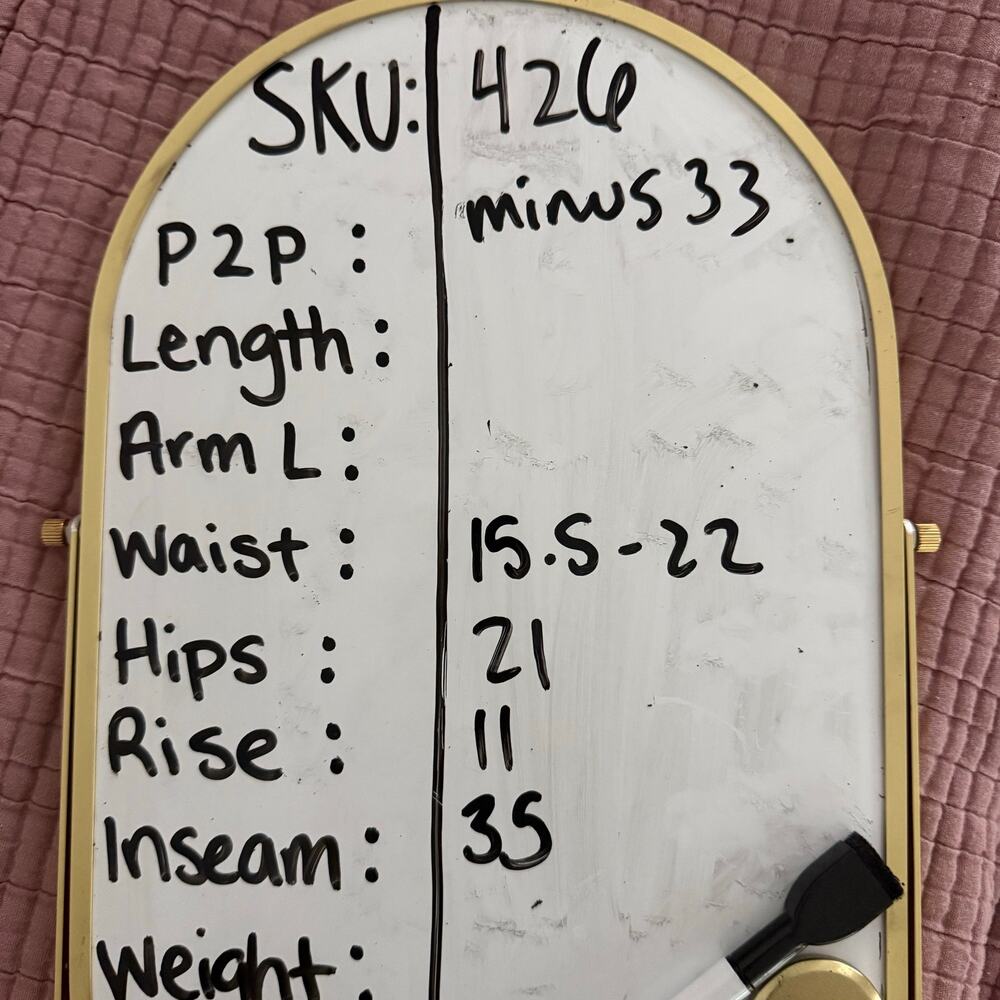 SKU: 426
minus 33
P2P :
Length :
Arm L :
Waist : 15.5-22
Hips : 21
Rise : 11
Inseam : 35
Weight :